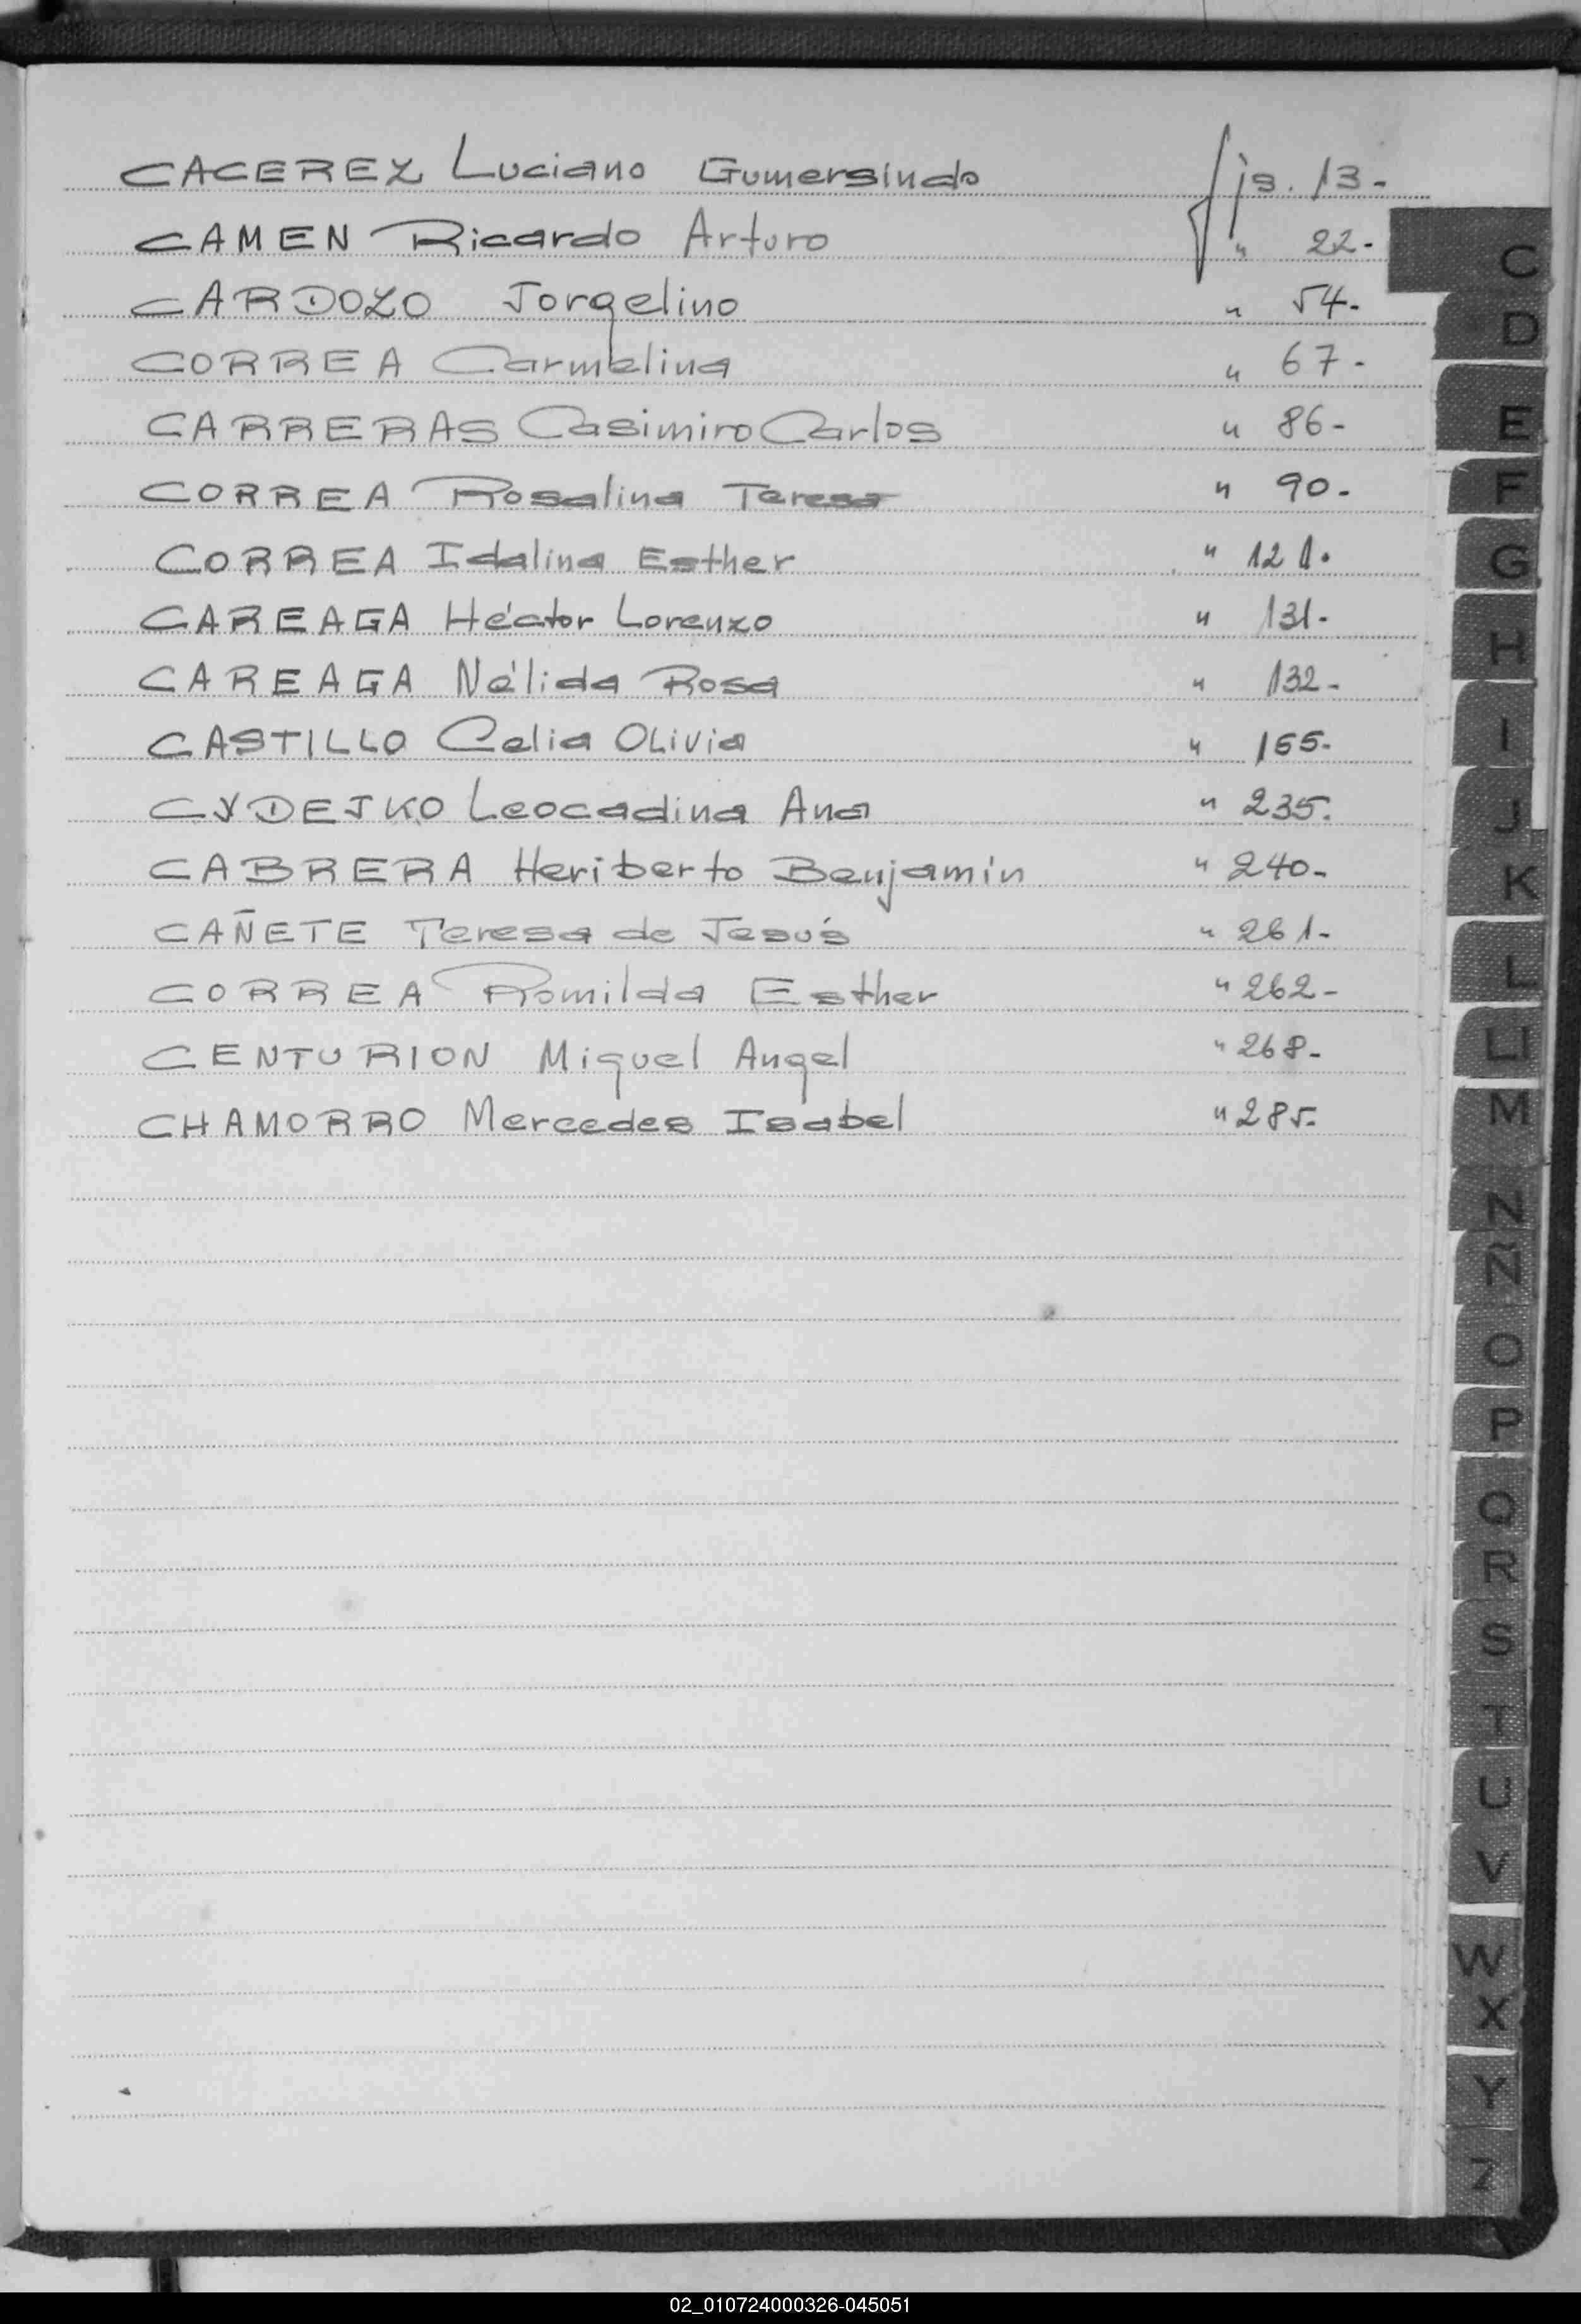 CACEREZ Luciano Gumersindo fjs. 13-
CAMEN Ricardo Arturo " 22-
CARDOZO Jorgelino " 54-
CORREA Carmelina " 67-
CARRERAS Casimiro Carlos " 86-
CORREA Rosalina Teresa " 90-
CORREA Idalina Esther " 121.
CAREAGA Héctor Lorenzo " 131-
CAREAGA Nélida Rosa " 132-
CASTILLO Celia OLivia " 155-
CYDEJKO Leocadina Ana " 235.
CABRERA Heriberto Benjamín " 240-
CAÑETE Teresa de Jesús " 261-
CORREA Romilda Esther " 262-
CENTURION Miguel Angel " 268-
CHAMORRO Mercedes Isabel " 285-
C
D
E
F
G
H
I
J
K
L
Ll
M
N
Ñ
O
P
Q
R
S
T
U
V
W
X
Y
Z
02_010724000326-045051